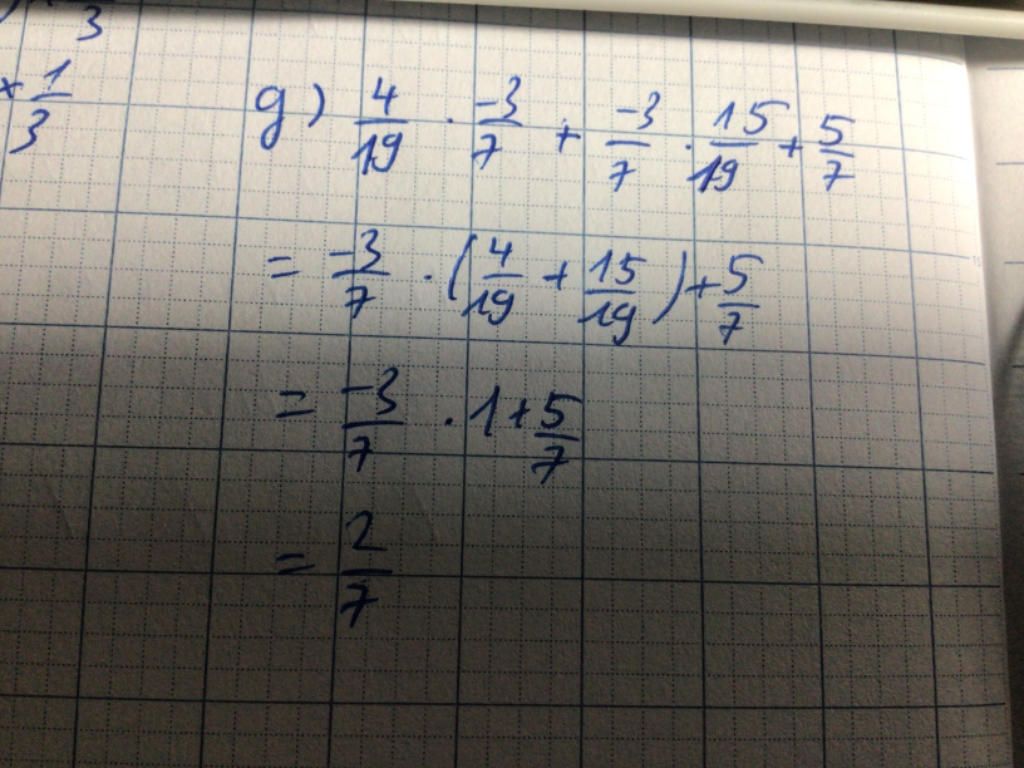 3
× 1/3
g) 4/19 . -3/7 + -3/7 . 15/19 + 5/7
= -3/7 . (4/19 + 15/19) + 5/7
= -3/7 . 1 + 5/7
= 2/7